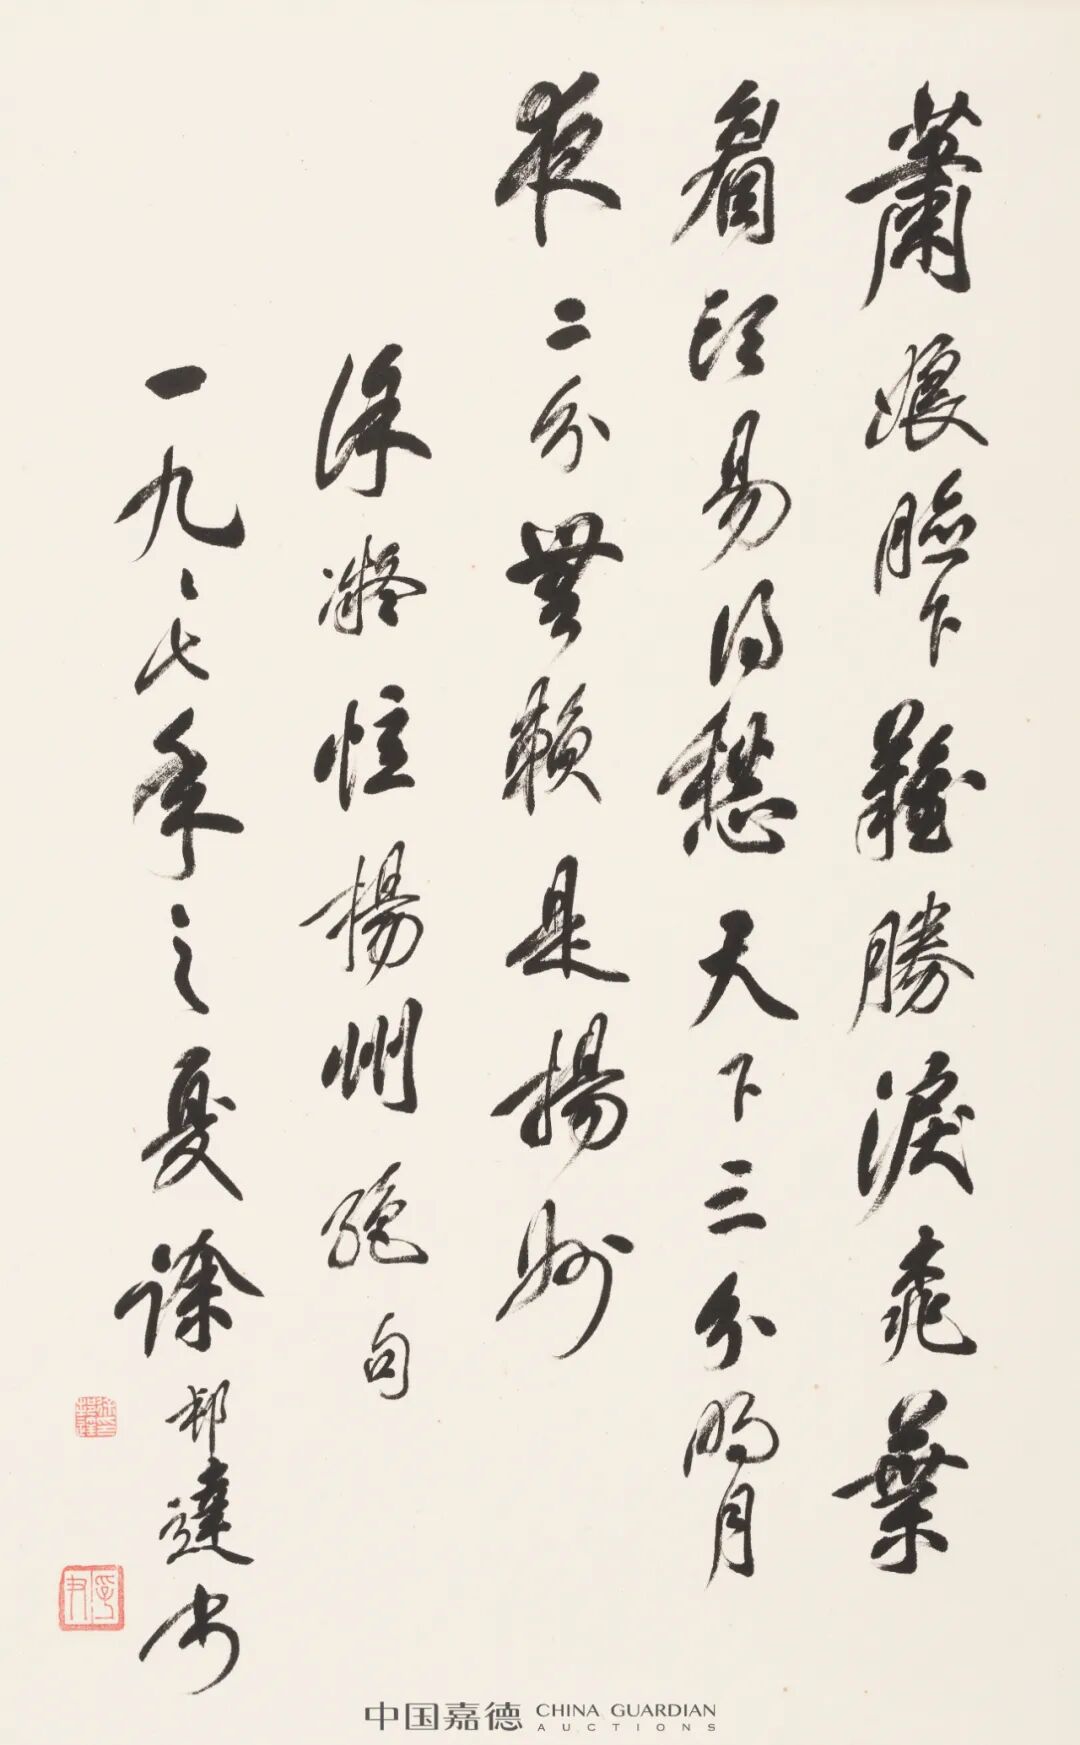 蕭娘臉下難勝淚桃葉
眉頭易得愁天下三分明月
夜二分無賴是揚州
徐凝憶楊州絕句
一九八七年之夏徐邦達書
孚尹
中国嘉德 CHINA GUARDIAN AUCTIONS